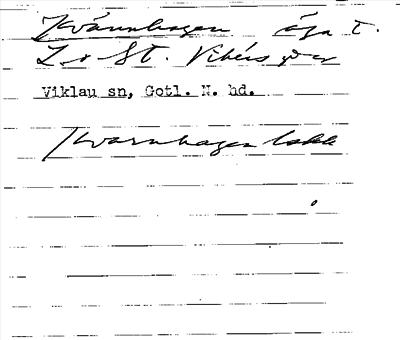 Kvännhagen äga t.
L. o St. Vikers
Viklau sn, Gotl. N. hd.
Kvarnhagen